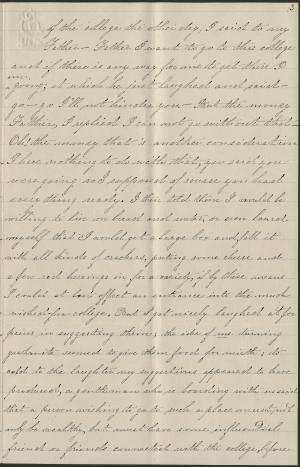 3
of the college the other day, I said to my
Father - Father I want to go to this college
and if there is any way for me to get there I'm
going; at which he just laughed and said -
go - go I'll not hinder you - But the money
Father, I replied I can not go without that -
Oh! the money that is another consideration
I have nothing to do with that, you said you
were going so I supposed of course you had
everything ready. I then told them I would be
willing to live on bread and water, or even
myself that I would get a large box and fill it
with all kinds of crackers, putting some cheese and
a few red herrings in for a variety, & by these means
I could at last effect an entrance into the much
wished for college. But I got nicely laughed at for
pains in suggesting this; the idea of me turning
seemed to give them food for mirth; to
add to the laughter my suggestions appeared to have
produced, a gentleman who is boarding with us said
that a person wishing to go to such a place must, not
only be wealthy, but must have some influential
friend or friends connected with the college, before